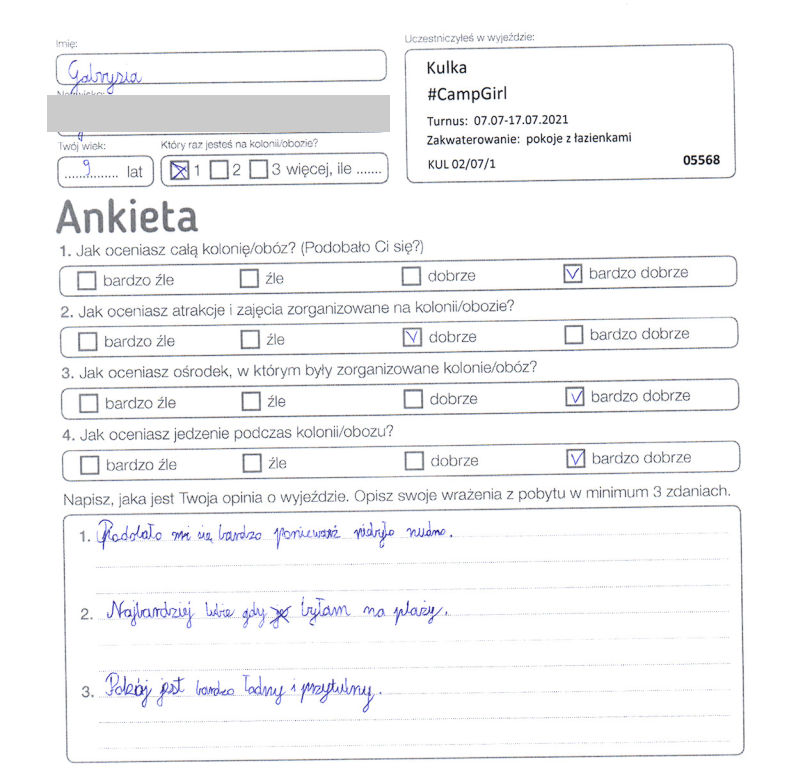 Imię:
Gabrysia
Uczestniczyłeś w wyjeździe:
Kulka
#CampGirl
Turnus: 07.07-17.07.2021
Zakwaterowanie: pokoje z łazienkami
KUL 02/07/1 05568
Nazwisko:
Twój wiek:
9 lat
Który raz jesteś na kolonii/obozie?
1 2 3 więcej, ile .......
Ankieta
1. Jak oceniasz całą kolonię/obóz? (Podobało Ci się?)
bardzo źle źle dobrze bardzo dobrze
2. Jak oceniasz atrakcje i zajęcia zorganizowane na kolonii/obozie?
bardzo źle źle dobrze bardzo dobrze
3. Jak oceniasz ośrodek, w którym były zorganizowane kolonie/obóz?
bardzo źle źle dobrze bardzo dobrze
4. Jak oceniasz jedzenie podczas kolonii/obozu?
bardzo źle źle dobrze bardzo dobrze
Napisz, jaka jest Twoja opinia o wyjeździe. Opisz swoje wrażenia z pobytu w minimum 3 zdaniach.
1. Podobało mi się bardzo ponieważ niebyło nudno.
2. Najbardziej lubie gdy byłam na plaży.
3. Pokój jest bardzo ładny i przytulny.